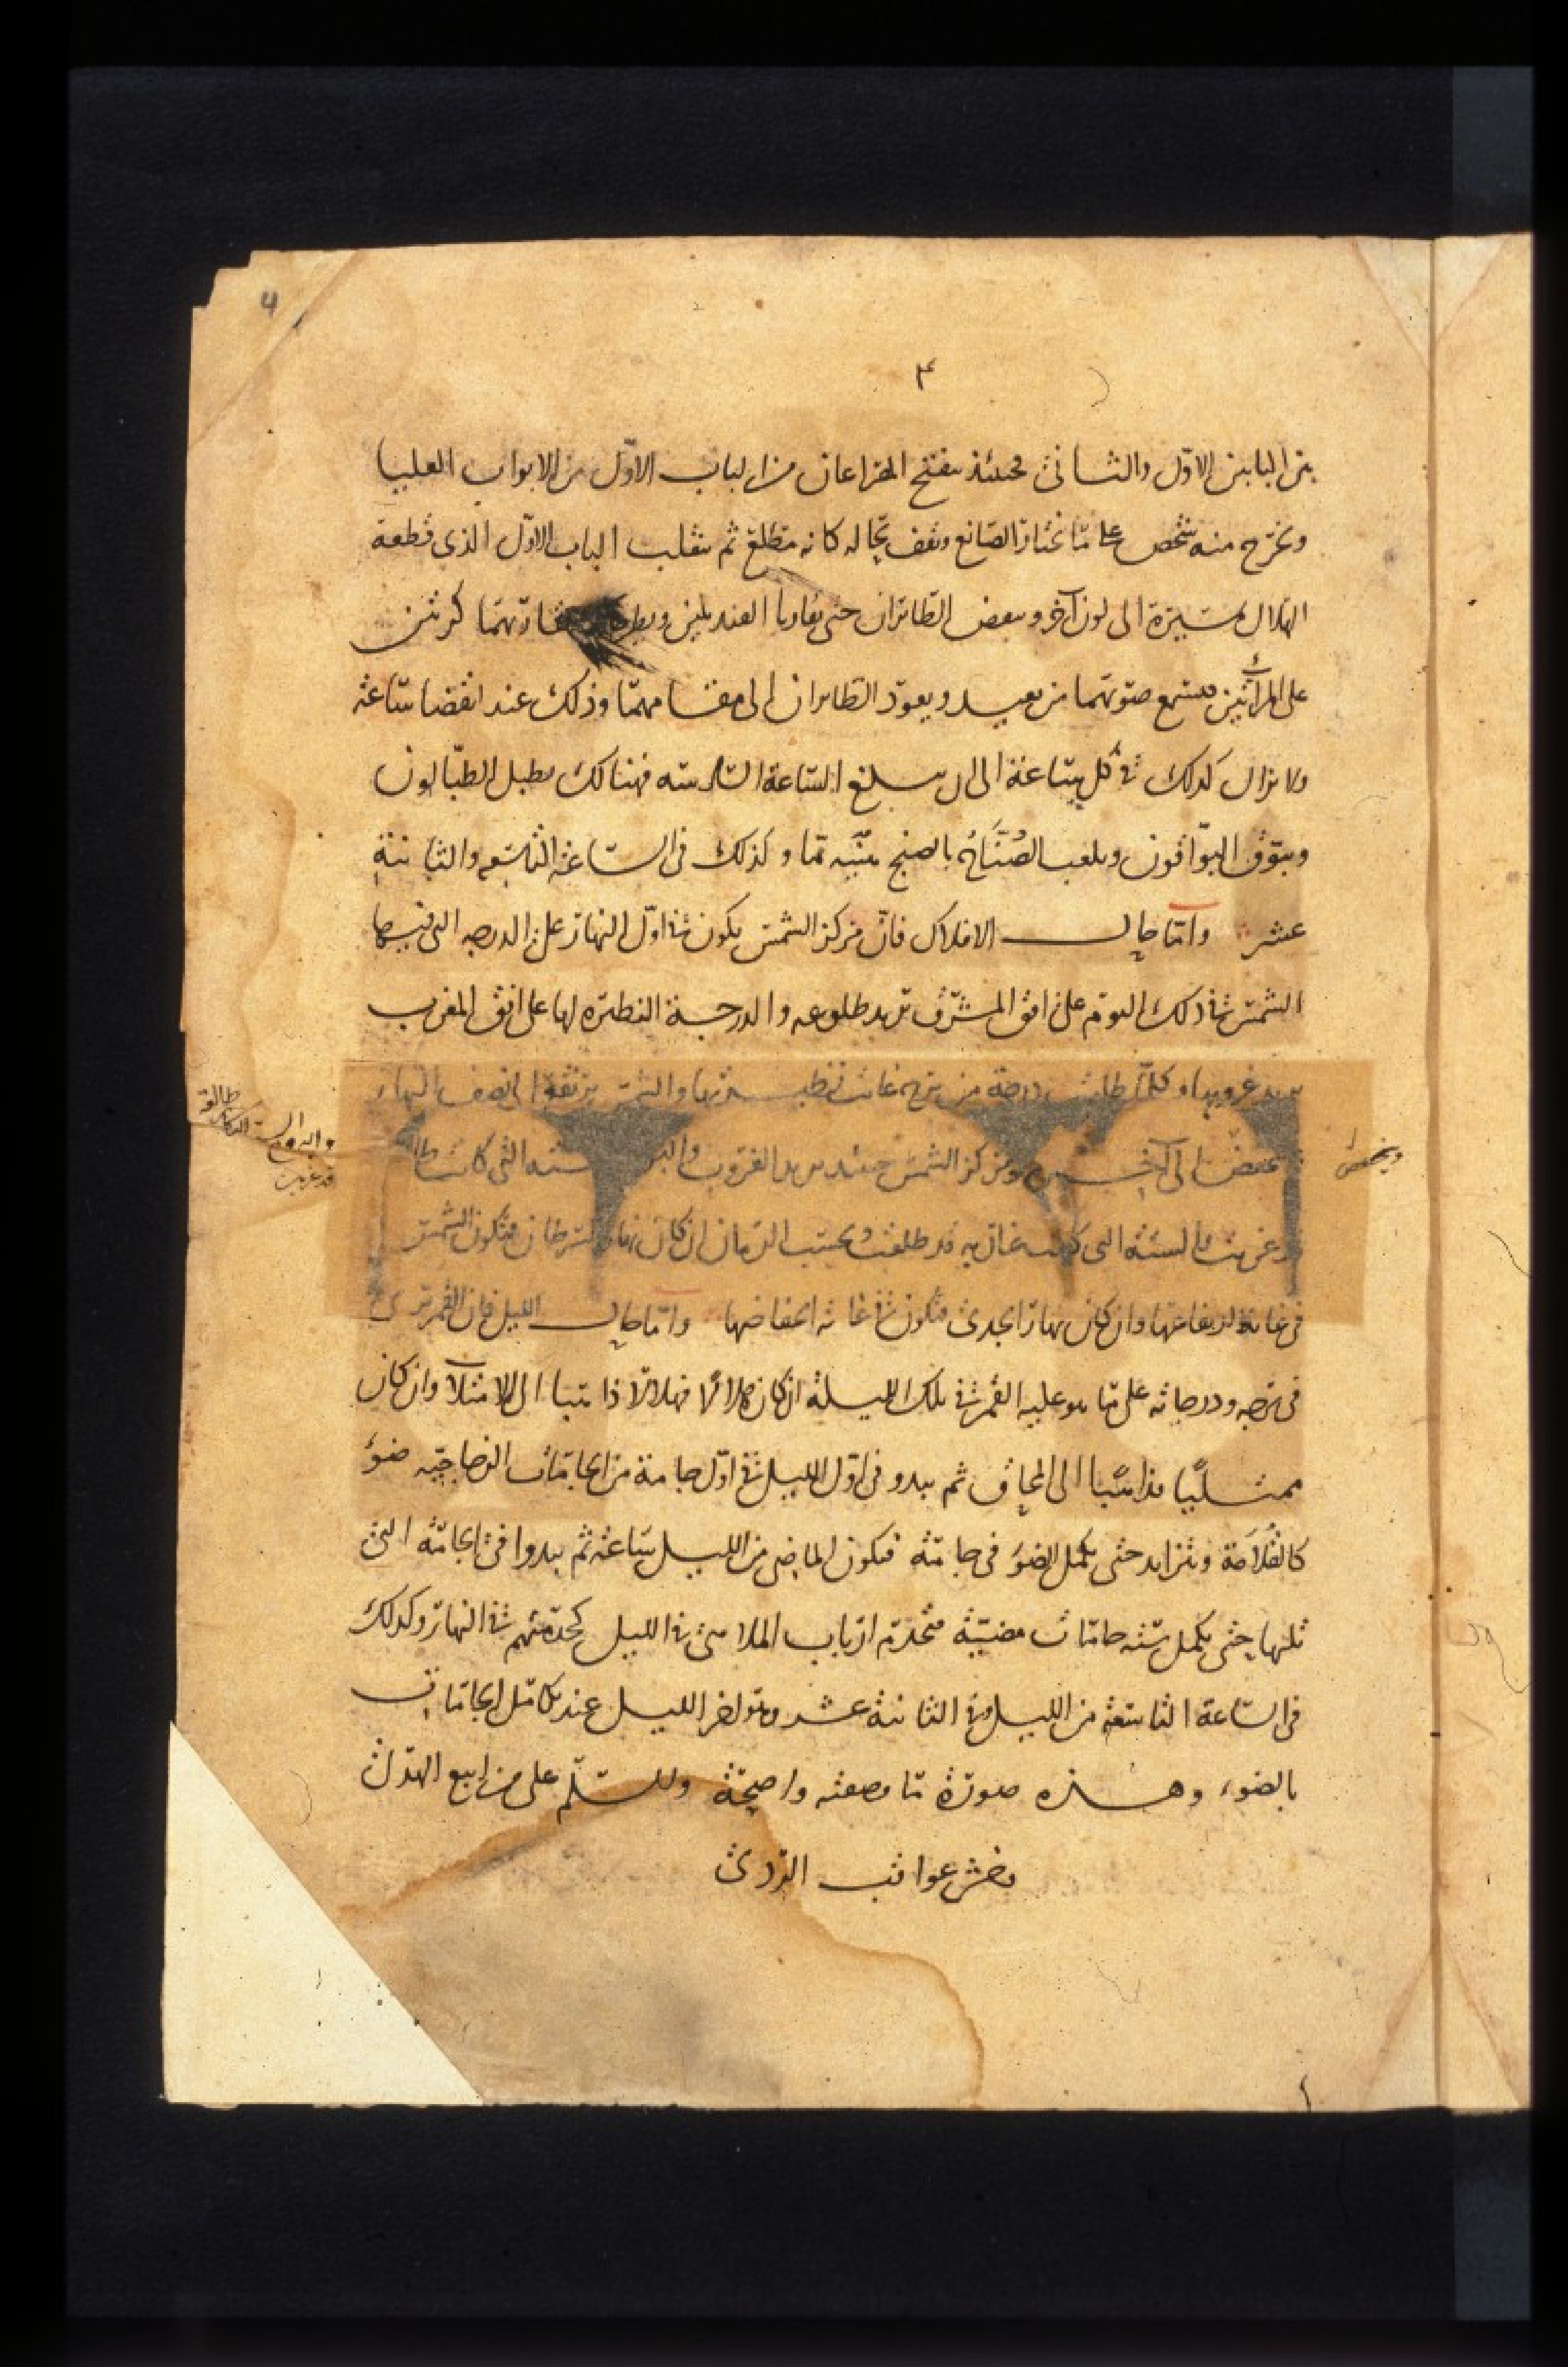 4
٤
بين البابين الاول والثاني فحينئذ ينفتح المصراعان من الباب الاوّل من الابواب العليا
ويخرج منه شخص على ما يختار الصانع ويقف بحاله كانه متطلع ثم ينقلب الباب الاوّل الذي قطعه
الهلال بمسيره الى لون آخر وينقض الطائران حتى يقاربا القنديلين ويطرحا من منقاريهما كرتين
على المرآتين فيسمع صوتهما من بعيد ويعود الطائران الى مقامهما وذلك عند انقضا ساعة
ولا يزال كذلك في كل ساعة الى ان يبلغ الساعة السادسة فهنالك يطبل الطبّالون
ويبوق البوّاقون ويلعب الصُنَّاج بالصنج وكذلك في الساعة التاسعه والثانية
عشر وامّا حال الافلاك فانّ مركز الشمس يكون في اوّل النهار على الدرجه التي فيها
الشمس في ذلك اليوم على افق المشرق يريد طلوعه والدرجة النظيره لها على افق المغرب
يريد غروبها وكلّما طلعت درجة من برج غابت نظيرتها والشمس ترتفع الى نصف النهار
وينخفض
الى آخره ومركز الشمس حينئذ يريد الغروب والبروج الستة التي كانت طالعة
والبروج الستة التي كانت طالعة
قد غربت
قد غربت والستة التي كانت غاربه قد طلعت وبحسب الزمان ان كان نهار السرطان فتكون الشمس
في غاية ارتفاعها وان كان نهار الجدي فتكون في غاية انخفاضها وامّا حال الليل فان القمر يرى
في برجه ودرجاته على ما هو عليه القمر في تلك الليلة ان كان هلالًا فهلالًا ذاهبا الى الامتلآ وان كان
ممتليًا فذاهبًا الى المحاق ثم يبدو في اوّل الليل في اوّل جامة من الجامات الزجاجيّه ضوء
كالقُلامَة ويتزايد حتى يكمل الضوء في جامة فيكون الماضي من الليل ساعة ثم يبدوا في الجامة التي
تليها حتى يكمل ستة جامات مضيئة فتخدم ارباب الملاهي في الليل كخدمتهم في النهار وكذلك
في الساعة التاسعة من الليل وفي الثانية عشر وهو اخر الليل عند تكامل الجامات
بالضوء وهـذه صورة ما وصفته واضحة والسـلم على من اتبع الهدى
وخشي عواقب الردى